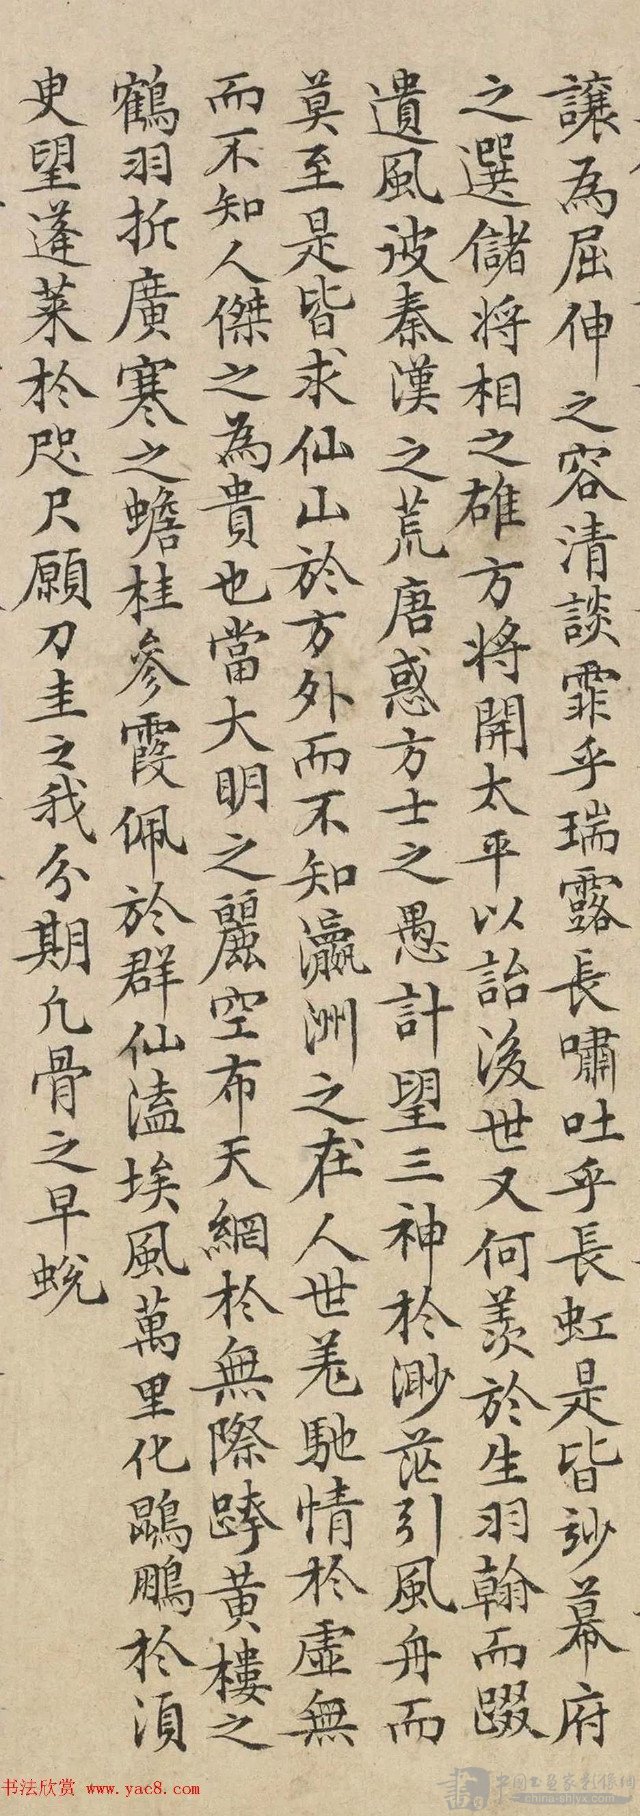 讓為屈伸之容清談霏乎瑞露長嘯吐乎長虹是皆玅幕府
之選儲將相之雄方將開太平以詒後世又何羨於生羽翰而躡
遺風彼秦漢之荒唐惑方士之愚計望三神於渺茫引風舟而
莫至是皆求仙山於方外而不知瀛洲之在人世羌馳情於虛無
而不知人傑之為貴也當大明之麗空布天網於無際跨黃樓之
鶴羽折廣寒之蟾桂參霞佩於群仙溘埃風萬里化鵾鵬於須
臾望蓬莱於咫尺願刀圭之我分期凡骨之早蛻
书法欣赏 www.yac8.com
china-shjyx.com